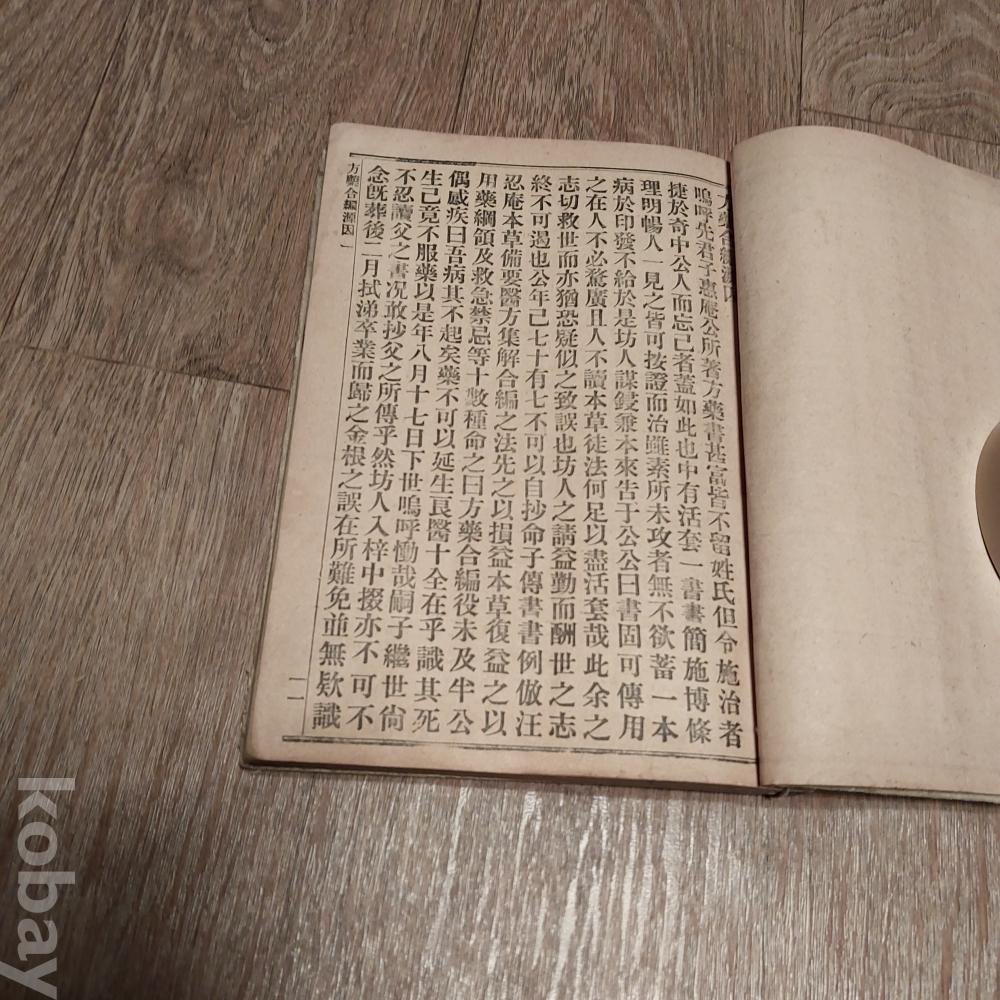 方藥合編源因
嗚呼先君子惠庵公所著方藥書甚富皆不留姓氏但令施治者
捷於奇中公人而忘己者蓋如此也中有活套一書書簡施博條
理明暢人一見之皆可按證而治雖素所未攻者無不欲蓄一本
病於印發不給於是坊人謀鋟兼本來告于公公曰書固可傳用
之在人不必騖廣且人不讀本草徒法何足以盡活套哉此余之
志切救世而亦猶恐疑似之致誤也坊人之請益勤而酬世之志
終不可遏也公年已七十有七不可以自抄命子傳書書例倣汪
忍庵本草備要醫方集解合編之法先之以損益本草復益之以
用藥綱領及救急禁忌等十數種命之曰方藥合編役未及半公
偶感疾曰吾病其不起矣藥不可以延生良醫十全在乎識其死
生已竟不服藥以是年八月十七日下世嗚呼慟哉嗣子繼世尙
不忍讀父之書况敢抄父之所傳乎然坊人入梓中掇亦不可不
念旣葬後二月拭涕卒業而歸之金根之誤在所難免並無欵識
方藥合編源因 一
一一
kobay